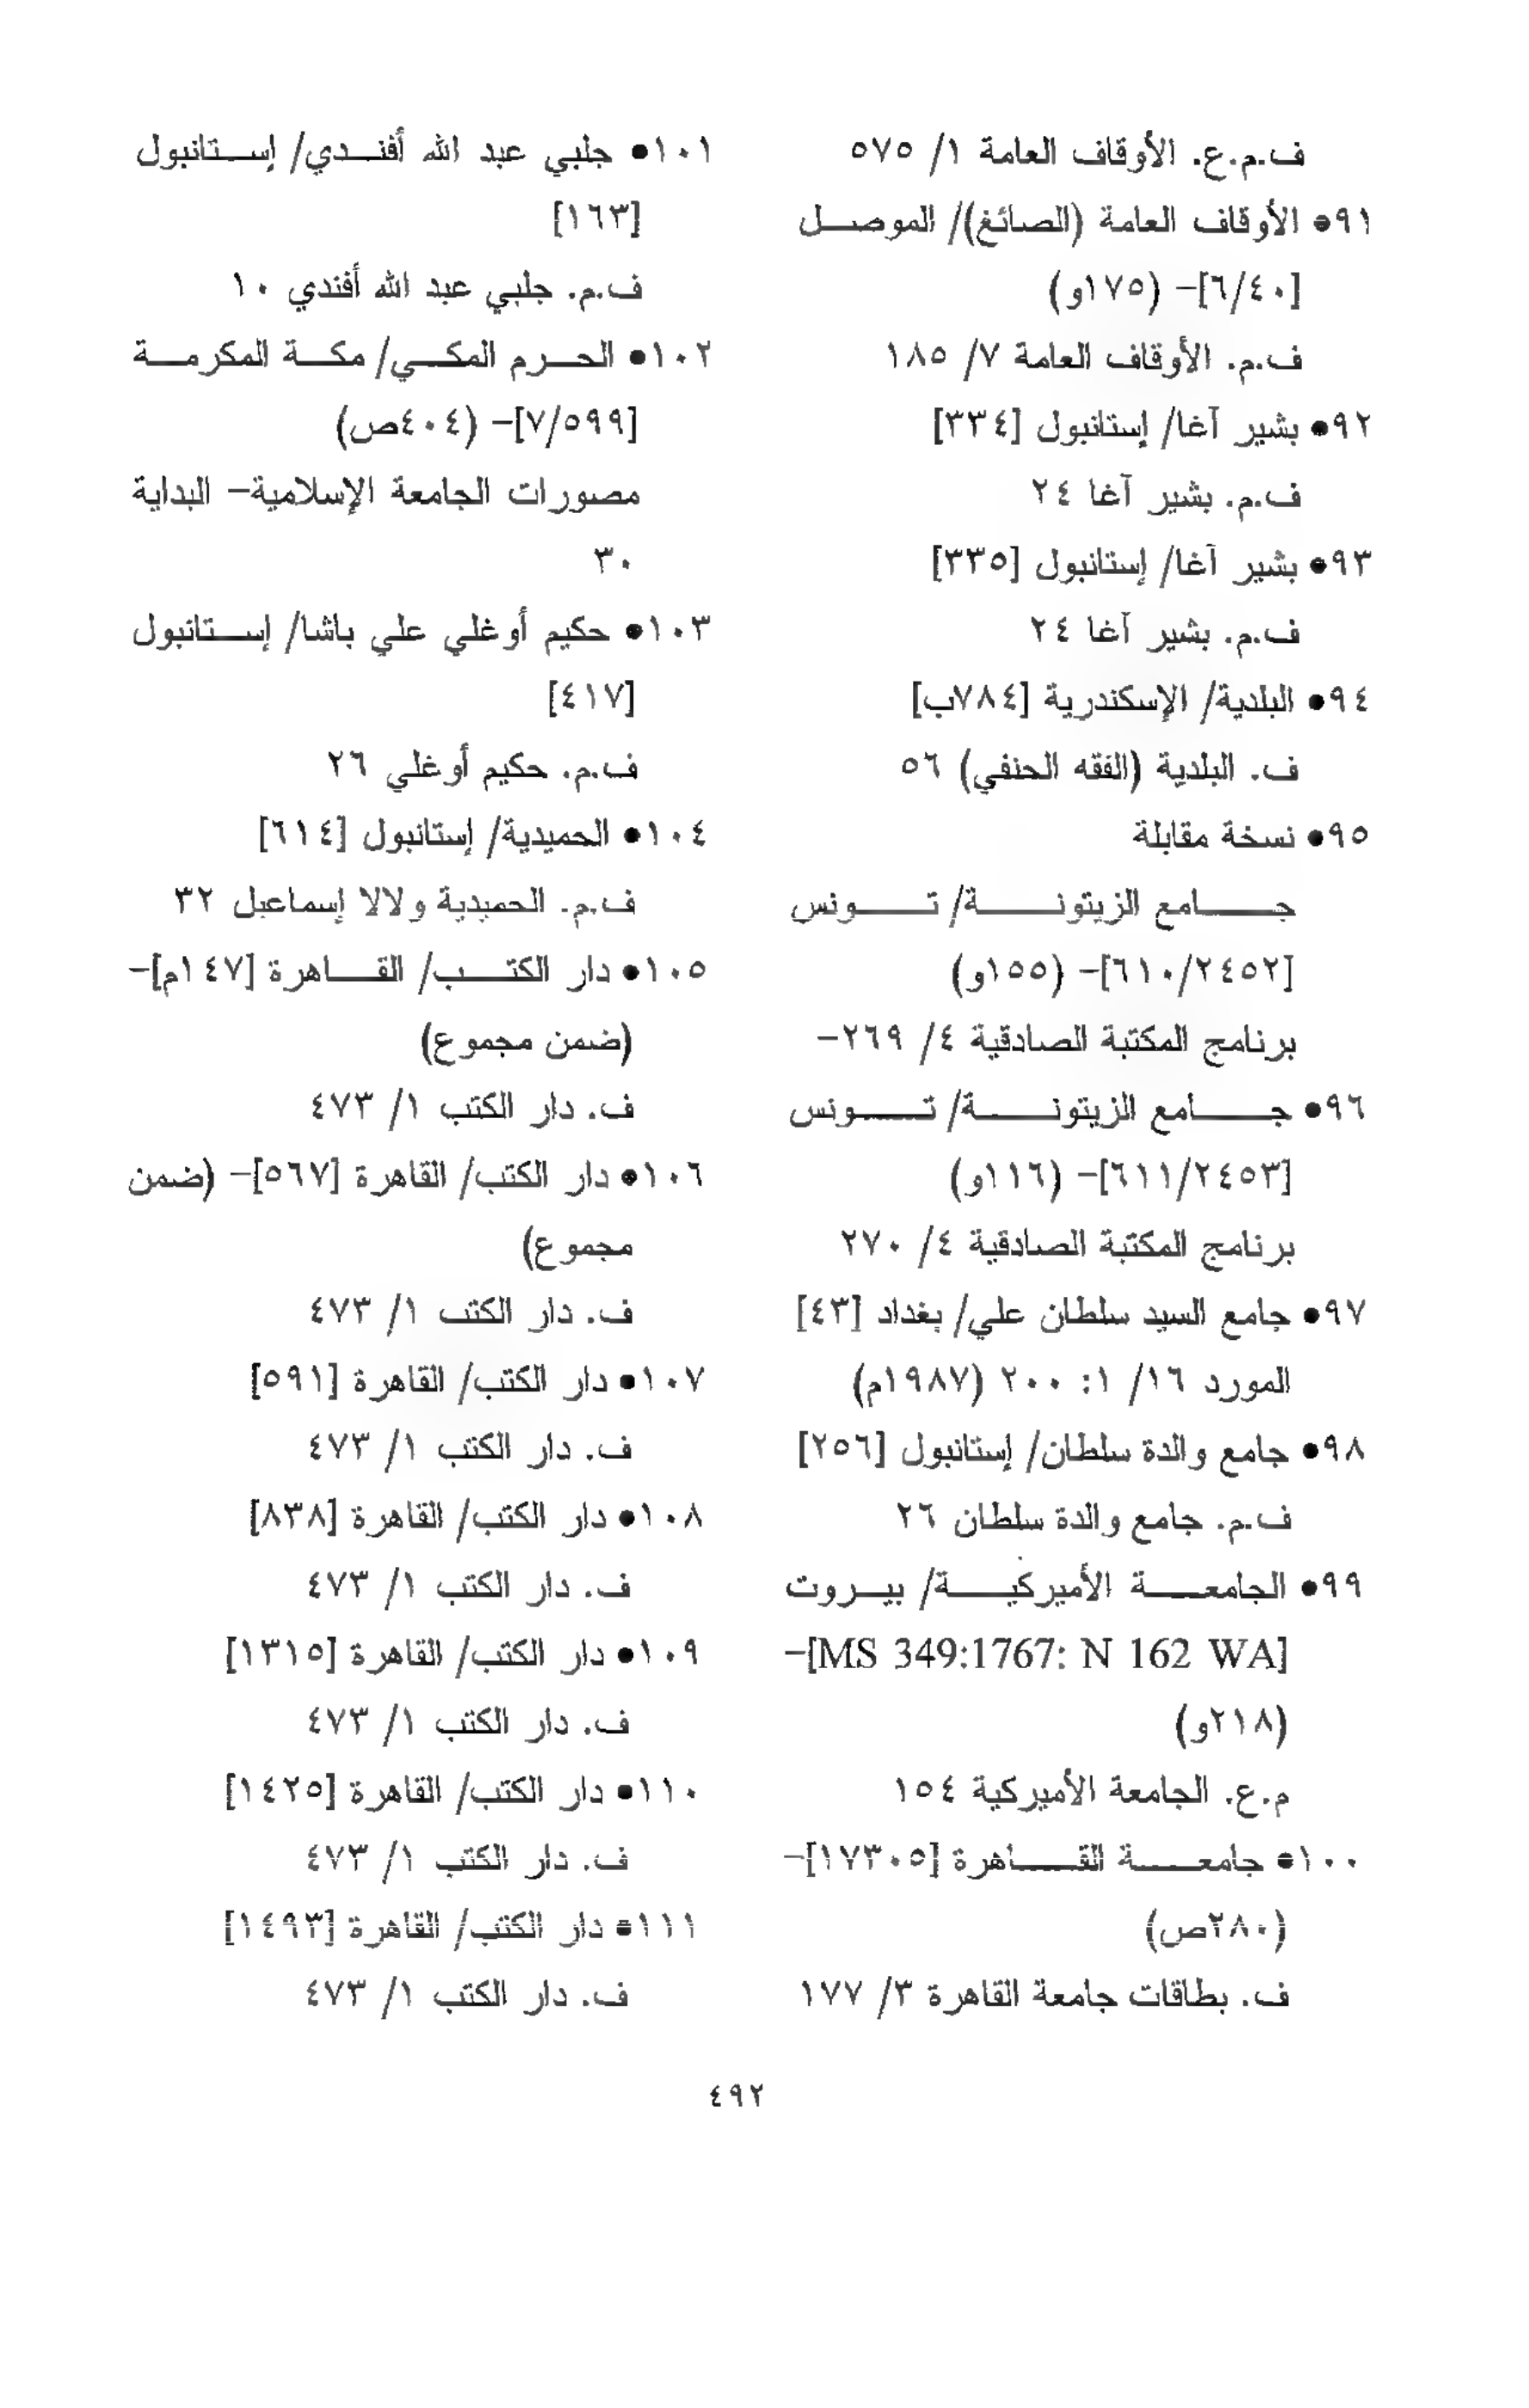 ف.م.ع. الأوقاف العامة ١/ ٥٧٥
٩١• الأوقاف العامة (الصائغ)/ الموصل
[٦/٤٠]- (١٧٥و)
ف.م. الأوقاف العامة ٧/ ١٨٥
٩٢• بشير آغا/ إستانبول [٣٣٤]
ف.م. بشير آغا ٢٤
٩٣• بشير آغا/ إستانبول [٣٣٥]
ف.م. بشير آغا ٢٤
٩٤• البلدية/ الإسكندرية [٧٨٤ب]
ف. البلدية (الفقه الحنفي) ٥٦
٩٥• نسخة مقابلة
جامع الزيتونة/ تونس
[٦١٠/٢٤٥٢]- (١٥٥و)
برنامج المكتبة الصادقية ٤/ ٢٦٩-
٩٦• جامع الزيتونة/ تونس
[٦١١/٢٤٥٣]- (١١٦و)
برنامج المكتبة الصادقية ٤/ ٢٧٠
٩٧• جامع السيد سلطان علي/ بغداد [٤٣]
المورد ١٦/ ١: ٢٠٠ (١٩٨٧م)
٩٨• جامع والدة سلطان/ إستانبول [٢٥٦]
ف.م. جامع والدة سلطان ٢٦
٩٩• الجامعة الأميركية/ بيروت
[MS 349:1767: N 162 WA]-
(٢١٨و)
م.ع. الجامعة الأميركية ١٥٤
١٠٠• جامعة القاهرة [١٧٣٠٥]-
(٢٨٠ص)
ف. بطاقات جامعة القاهرة ٣/ ١٧٧
١٠١• جلبي عبد الله أفندي/ إستانبول
[١٦٣]
ف.م. جلبي عبد الله أفندي ١٠
١٠٢• الحرم المكي/ مكة المكرمة
[٧/٥٩٩]- (٤٠٤ص)
مصورات الجامعة الإسلامية- البداية
٣٠
١٠٣• حكيم أوغلي علي باشا/ إستانبول
[٤١٧]
ف.م. حكيم أوغلي ٢٦
١٠٤• الحميدية/ إستانبول [٦١٤]
ف.م. الحميدية ولالا إسماعيل ٣٢
١٠٥• دار الكتب/ القاهرة [١٤٧م]-
(ضمن مجموع)
ف. دار الكتب ١/ ٤٧٣
١٠٦• دار الكتب/ القاهرة [٥٦٧]- (ضمن
مجموع)
ف. دار الكتب ١/ ٤٧٣
١٠٧• دار الكتب/ القاهرة [٥٩١]
ف. دار الكتب ١/ ٤٧٣
١٠٨• دار الكتب/ القاهرة [٨٣٨]
ف. دار الكتب ١/ ٤٧٣
١٠٩• دار الكتب/ القاهرة [١٣١٥]
ف. دار الكتب ١/ ٤٧٣
١١٠• دار الكتب/ القاهرة [١٤٢٥]
ف. دار الكتب ١/ ٤٧٣
١١١• دار الكتب/ القاهرة [١٤٩٣]
ف. دار الكتب ١/ ٤٧٣
٤٩٢